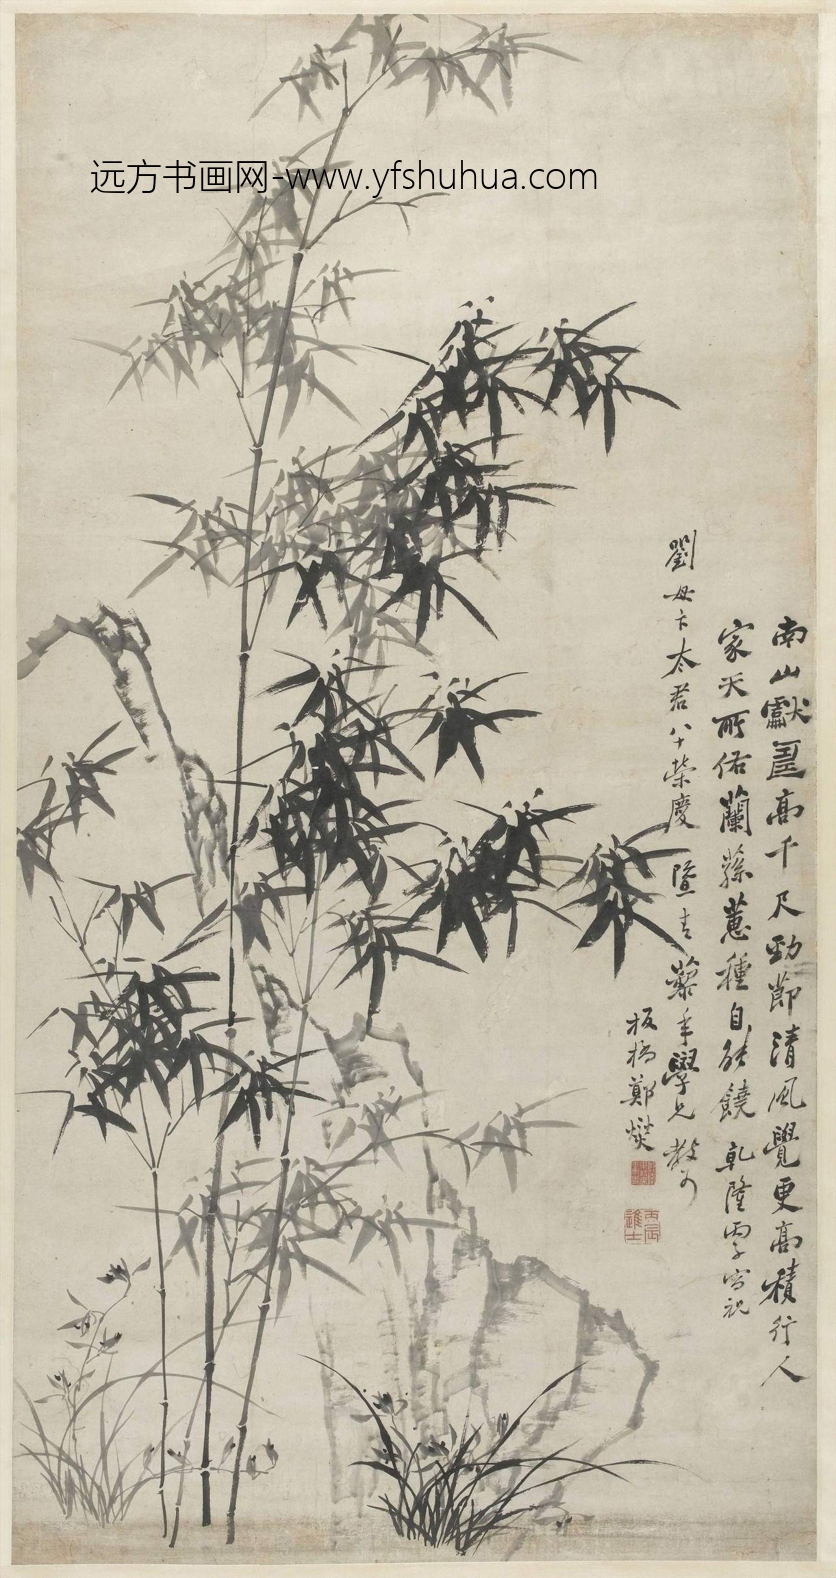 远方书画网-www.yfshuhua.com
南山獻壽高千尺勁節清風覺更高積行人
家天所佑蘭蓀蕙種自能饒乾隆丙子寫祝
劉母卞太君八十榮慶
藜年學兄教可
板橋鄭燮
丙辰進士